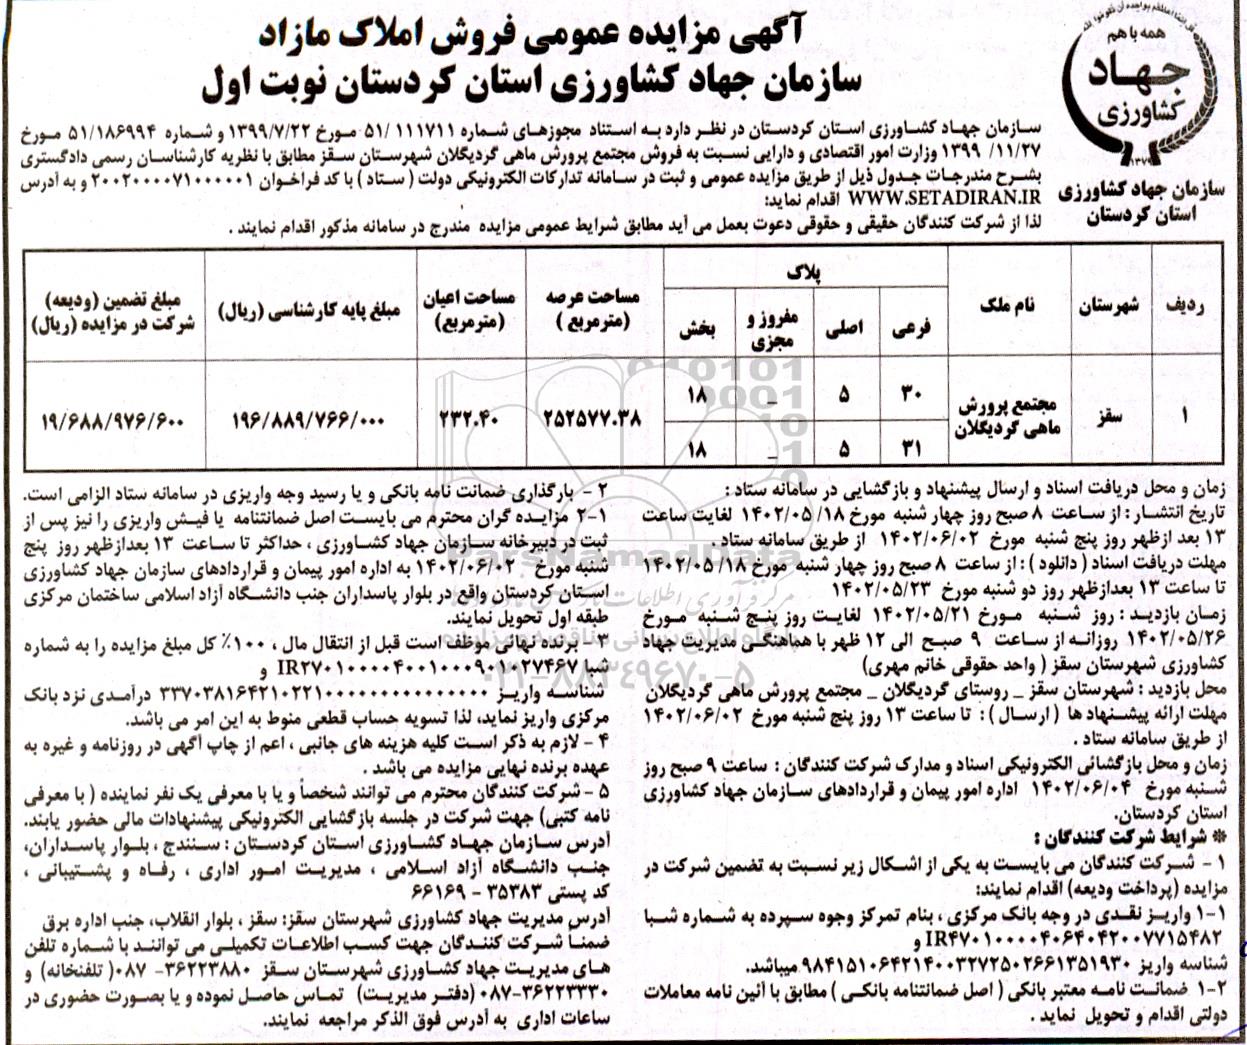 آگهی مزایده عمومی فروش املاک مازاد
سازمان جهاد کشاورزی استان کردستان نوبت اول
همه با هم
جهاد
کشاورزی
سازمان جهاد کشاورزی
استان کردستان
سازمان جهاد کشاورزی استان کردستان در نظر دارد به استناد مجوزهای شماره ۱۱۱۷۱۱ /۵۱ مورخ ۱۳۹۹/۷/۲۲ و شماره ۵۱/۱۸۶۹۹۴ مورخ
۱۳۹۹ /۱۱/۲۷ وزارت امور اقتصادی و دارایی نسبت به فروش مجتمع پرورش ماهی گردیگلان شهرستان سقز مطابق با نظریه کارشناسان رسمی دادگستری
بشرح مندرجات جدول ذیل از طریق مزایده عمومی و ثبت در سامانه تدارکات الکترونیکی دولت ( ستاد ) با کد فراخوان ۲۰۰۲۰۰۰۰۷۱۰۰۰۰۰۱ و به آدرس
WWW.SETADIRAN.IR اقدام نماید:
لذا از شرکت کنندگان حقیقی و حقوقی دعوت بعمل می آید مطابق شرایط عمومی مزایده مندرج در سامانه مذکور اقدام نمایند .
ردیف شهرستان نام ملک پلاک مساحت عرصه (مترمربع ) مساحت اعیان (مترمربع) مبلغ پایه کارشناسی (ریال) مبلغ تضمین (ودیعه) شرکت در مزایده (ریال)
فرعی اصلی مفروز و مجزی بخش
۱ سقز مجتمع پرورش ماهی گردیگلان ۳۰ ۵ _ ۱۸ ۲۵۲۵۷۷.۳۸ ۲۳۲.۴۰ ۱۹۶/۸۸۹/۷۶۶/۰۰۰ ۱۹/۶۸۸/۹۷۶/۶۰۰
۳۱ ۵ _ ۱۸
زمان و محل دریافت اسناد و ارسال پیشنهاد و بازگشایی در سامانه ستاد :
تاریخ انتشار : از ساعت ۸ صبح روز چهار شنبه مورخ ۱۸/ ۱۴۰۲/۰۵ لغایت ساعت
۱۳ بعد ازظهر روز پنج شنبه مورخ ۱۴۰۲/۰۶/۰۲ از طریق سامانه ستاد .
مهلت دریافت اسناد ( دانلود ) : از ساعت ۸ صبح روز چهار شنبه مورخ ۱۸/ ۱۴۰۲/۰۵
تا ساعت ۱۳ بعدازظهر روز دو شنبه مورخ ۱۴۰۲/۰۵/۲۳
زمان بازدید : روز شنبه مورخ ۱۴۰۲/۰۵/۲۱ لغایت روز پنج شنبه مورخ
۱۴۰۲/۰۵/۲۶ روزانه از ساعت ۹ صبح الی ۱۲ ظهر با هماهنگی مدیریت جهاد
کشاورزی شهرستان سقز ( واحد حقوقی خانم مهری)
محل بازدید : شهرستان سقز _ روستای گردیگلان _ مجتمع پرورش ماهی گردیگلان
مهلت ارائه پیشنهاد ها ( ارسال ) : تا ساعت ۱۳ روز پنج شنبه مورخ ۱۴۰۲/۰۶/۰۲
از طریق سامانه ستاد .
زمان و محل بازگشائی الکترونیکی اسناد و مدارک شرکت کنندگان : ساعت ۹ صبح روز
شنبه مورخ ۱۴۰۲/۰۶/۰۴ اداره امور پیمان و قراردادهای سازمان جهاد کشاورزی
استان کردستان.
* شرایط شرکت کنندگان :
۱ - شرکت کنندگان می بایست به یکی از اشکال زیر نسبت به تضمین شرکت در
مزایده (پرداخت ودیعه) اقدام نمایند:
۱-۱ واریز نقدی در وجه بانک مرکزی ، بنام تمرکز وجوه سپرده به شماره شبا
IR۴۷۰۱۰۰۰۰۴۰۶۴۰۴۲۰۰۷۷۱۵۴۸۲ و
شناسه واریز ۹۸۴۱۵۱۰۶۴۲۱۴۰۰۳۲۷۲۵۰۲۶۶۱۳۵۱۹۳۰ میباشد.
۱-۲ ضمانت نامه معتبر بانکی ( اصل ضمانتنامه بانکی ) مطابق با آئین نامه معاملات
دولتی اقدام و تحویل نماید .
۲ - بارگذاری ضمانت نامه بانکی و یا رسید وجه واریزی در سامانه ستاد الزامی است.
۲-۱ مزایده گران محترم می بایست اصل ضمانتنامه یا فیش واریزی را نیز پس از
ثبت در دبیرخانه سازمان جهاد کشاورزی ، حداکثر تا ساعت ۱۳ بعدازظهر روز پنج
شنبه مورخ ۱۴۰۲/۰۶/۰۲ به اداره امور پیمان و قراردادهای سازمان جهاد کشاورزی
استان کردستان واقع در بلوار پاسداران جنب دانشگاه آزاد اسلامی ساختمان مرکزی
طبقه اول تحویل نمایند.
۳ - برنده نهائی موظف است قبل از انتقال مال ، ۱۰۰٪ کل مبلغ مزایده را به شماره
شبا IR۲۷۰۱۰۰۰۰۴۰۰۱۰۰۰۹۰۱۰۲۷۴۶۷ و
شناسه واریز ۳۳۷۰۳۸۱۶۴۲۱۰۲۲۱۰۰۰۰۰۰۰۰۰۰۰۰۰۰۰ درآمدی نزد بانک
مرکزی واریز نماید، لذا تسویه حساب قطعی منوط به این امر می باشد.
۴ - لازم به ذکر است کلیه هزینه های جانبی ، اعم از چاپ آگهی در روزنامه و غیره به
عهده برنده نهایی مزایده می باشد .
۵ - شرکت کنندگان محترم می توانند شخصاً و یا با معرفی یک نفر نماینده ( با معرفی
نامه کتبی) جهت شرکت در جلسه بازگشایی الکترونیکی پیشنهادات مالی حضور یابند.
آدرس سازمان جهاد کشاورزی استان کردستان : سنندج ، بلوار پاسداران،
جنب دانشگاه آزاد اسلامی ، مدیریت امور اداری ، رفاه و پشتیبانی ،
کد پستی ۳۵۳۸۳ - ۶۶۱۶۹
آدرس مدیریت جهاد کشاورزی شهرستان سقز: سقز ، بلوار انقلاب، جنب اداره برق
ضمناً شرکت کنندگان جهت کسب اطلاعات تکمیلی می توانند با شماره تلفن
های مدیریت جهاد کشاورزی شهرستان سقز ۳۶۲۲۳۸۸۰- ۰۸۷( تلفنخانه) و
۰۸۷-۳۶۲۲۳۳۳۰ (دفتر مدیریت) تماس حاصل نموده و یا بصورت حضوری در
ساعات اداری به آدرس فوق الذکر مراجعه نمایند.
ParsNamadData
۰۲۱-۸۸۳۴۹۶۷۰-۵